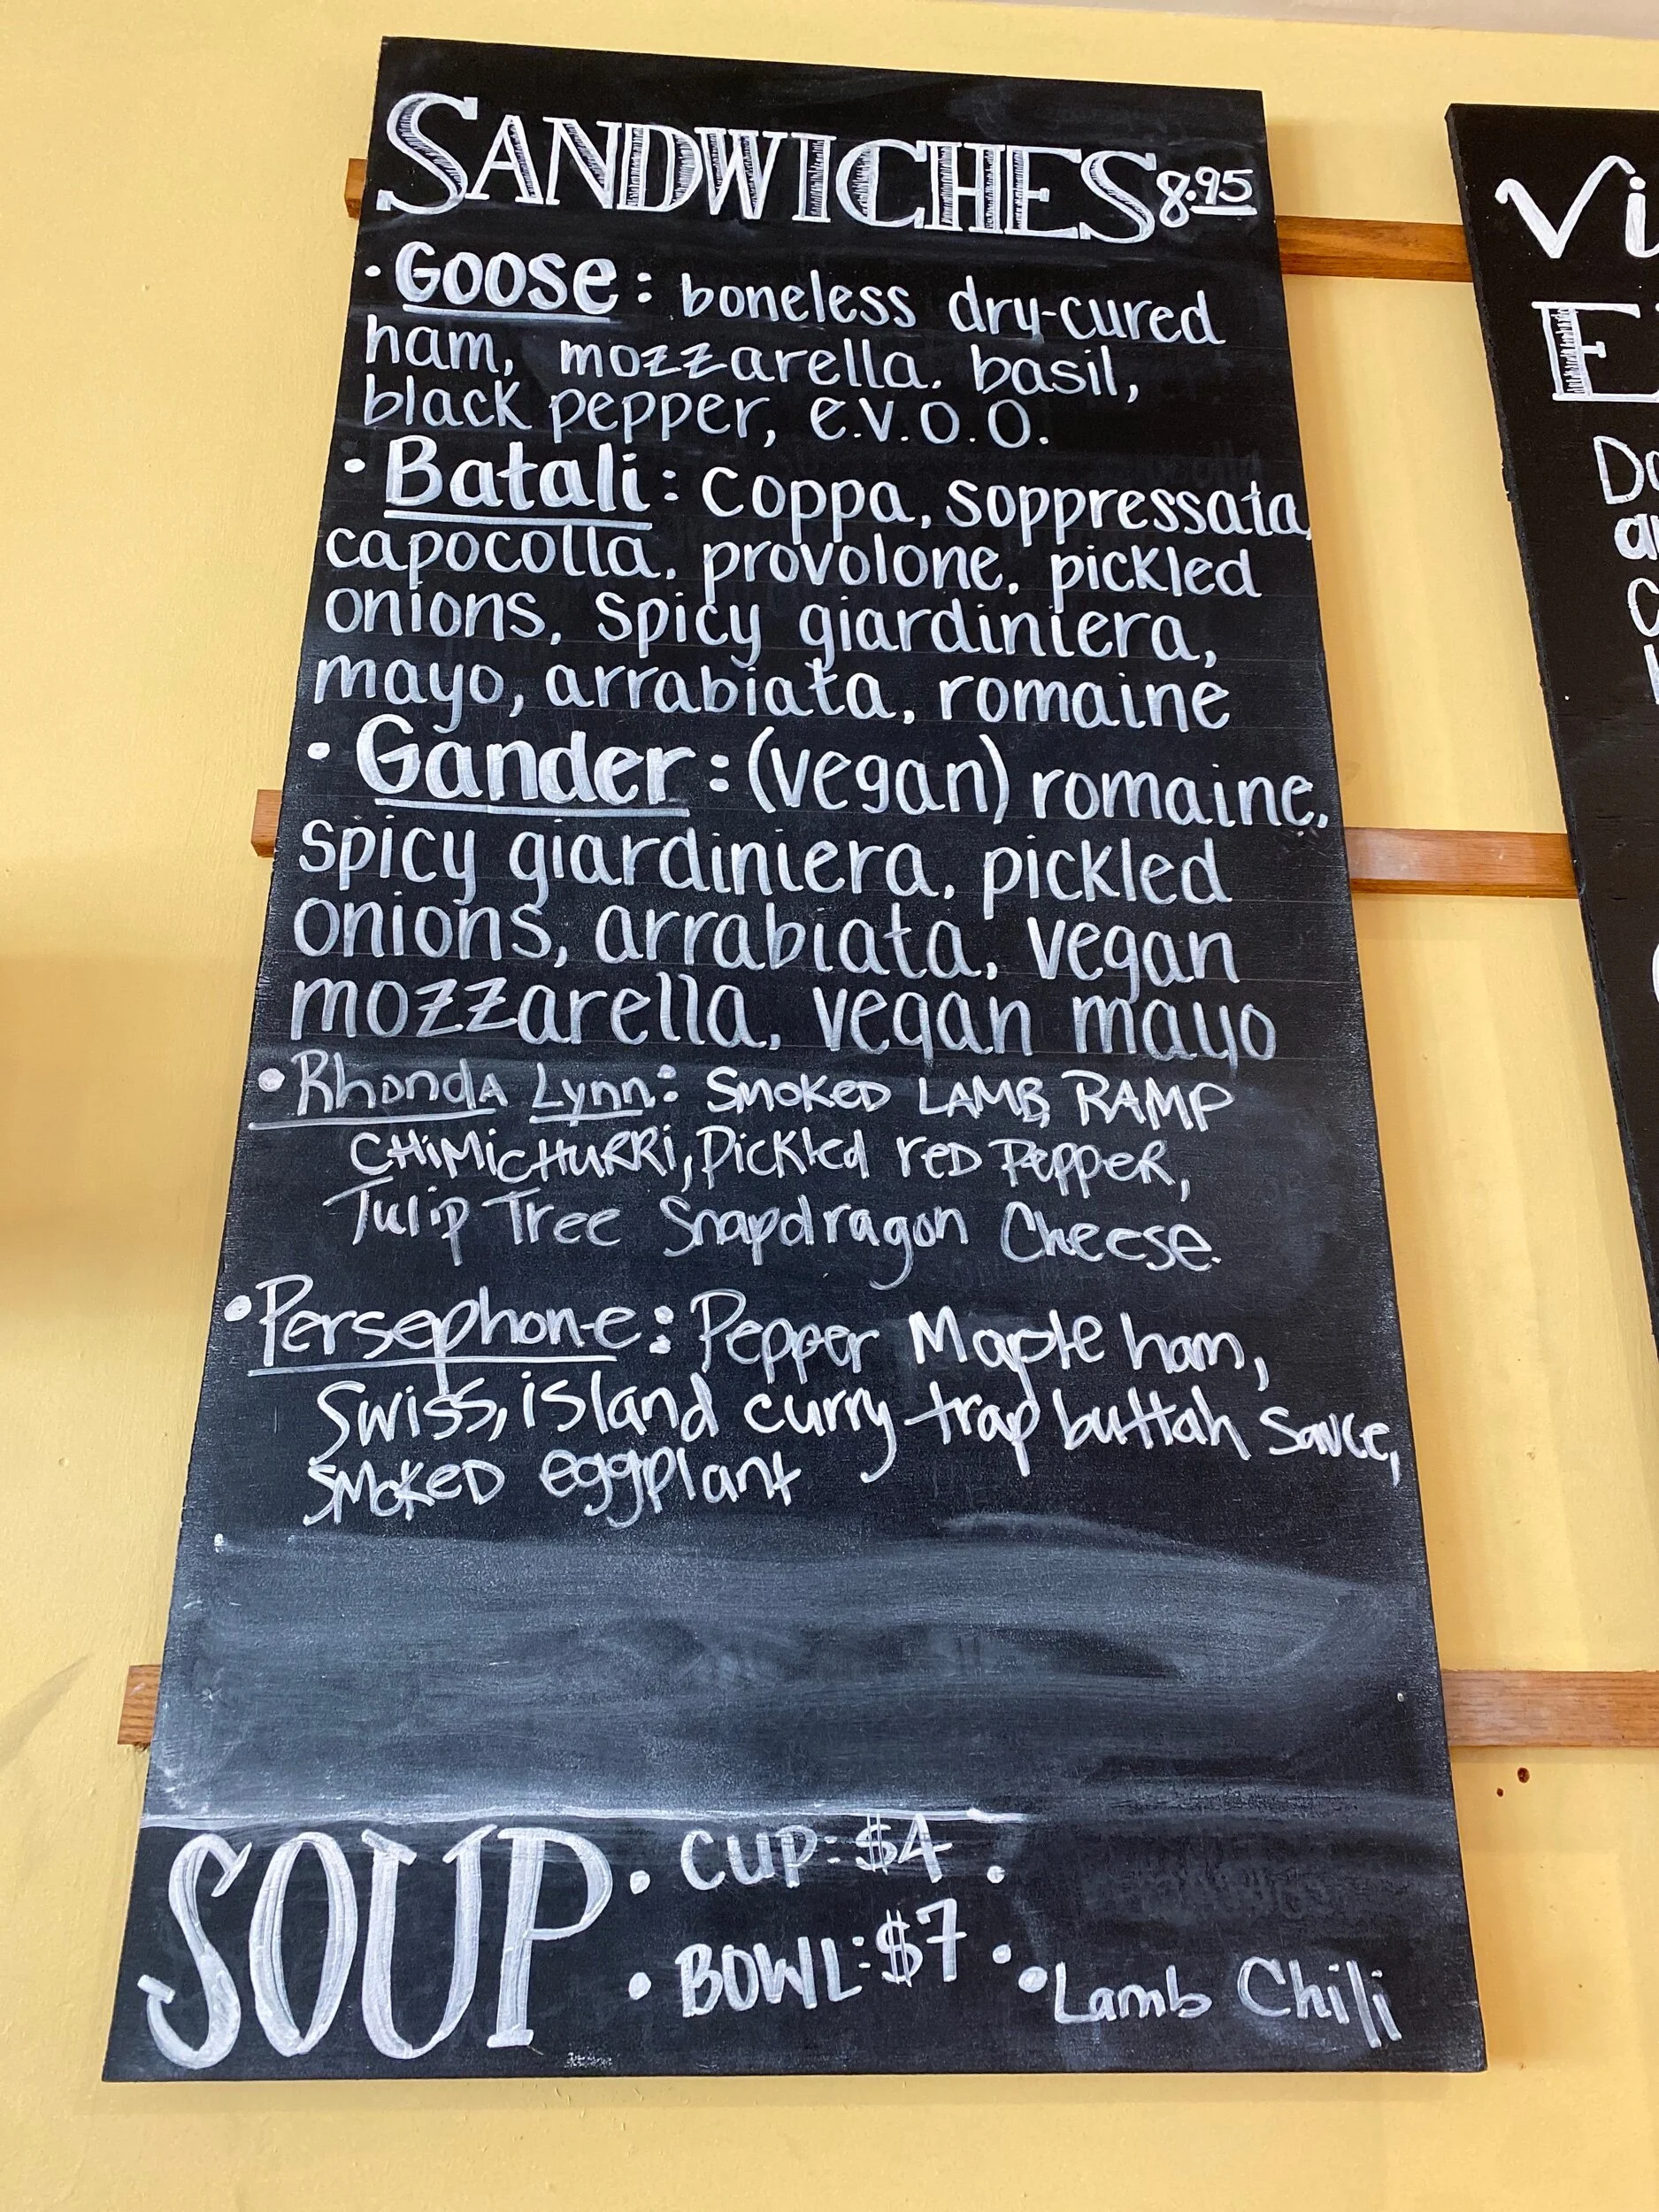 SANDWICHES 8.95
• Goose: boneless dry-cured
ham, mozzarella, basil,
black pepper, e.v.o.o.
• Batali: coppa, soppressata,
capocolla, provolone, pickled
onions, spicy giardiniera,
mayo, arrabiata, romaine
• Gander: (vegan) romaine,
spicy giardiniera, pickled
onions, arrabiata, vegan
mozzarella, vegan mayo
• Rhonda Lynn: SMOKED LAMB, RAMP
CHIMICHURRI, Pickled reD PePPeR,
Tulip Tree Snapdragon Cheese.
• Persephone: Pepper Maple ham,
Swiss, island curry trap buttah sauce,
SMOKED eggplant
SOUP • CUP: $4 •
• BOWL: $7 •
• Lamb Chili
Vi
E
Do